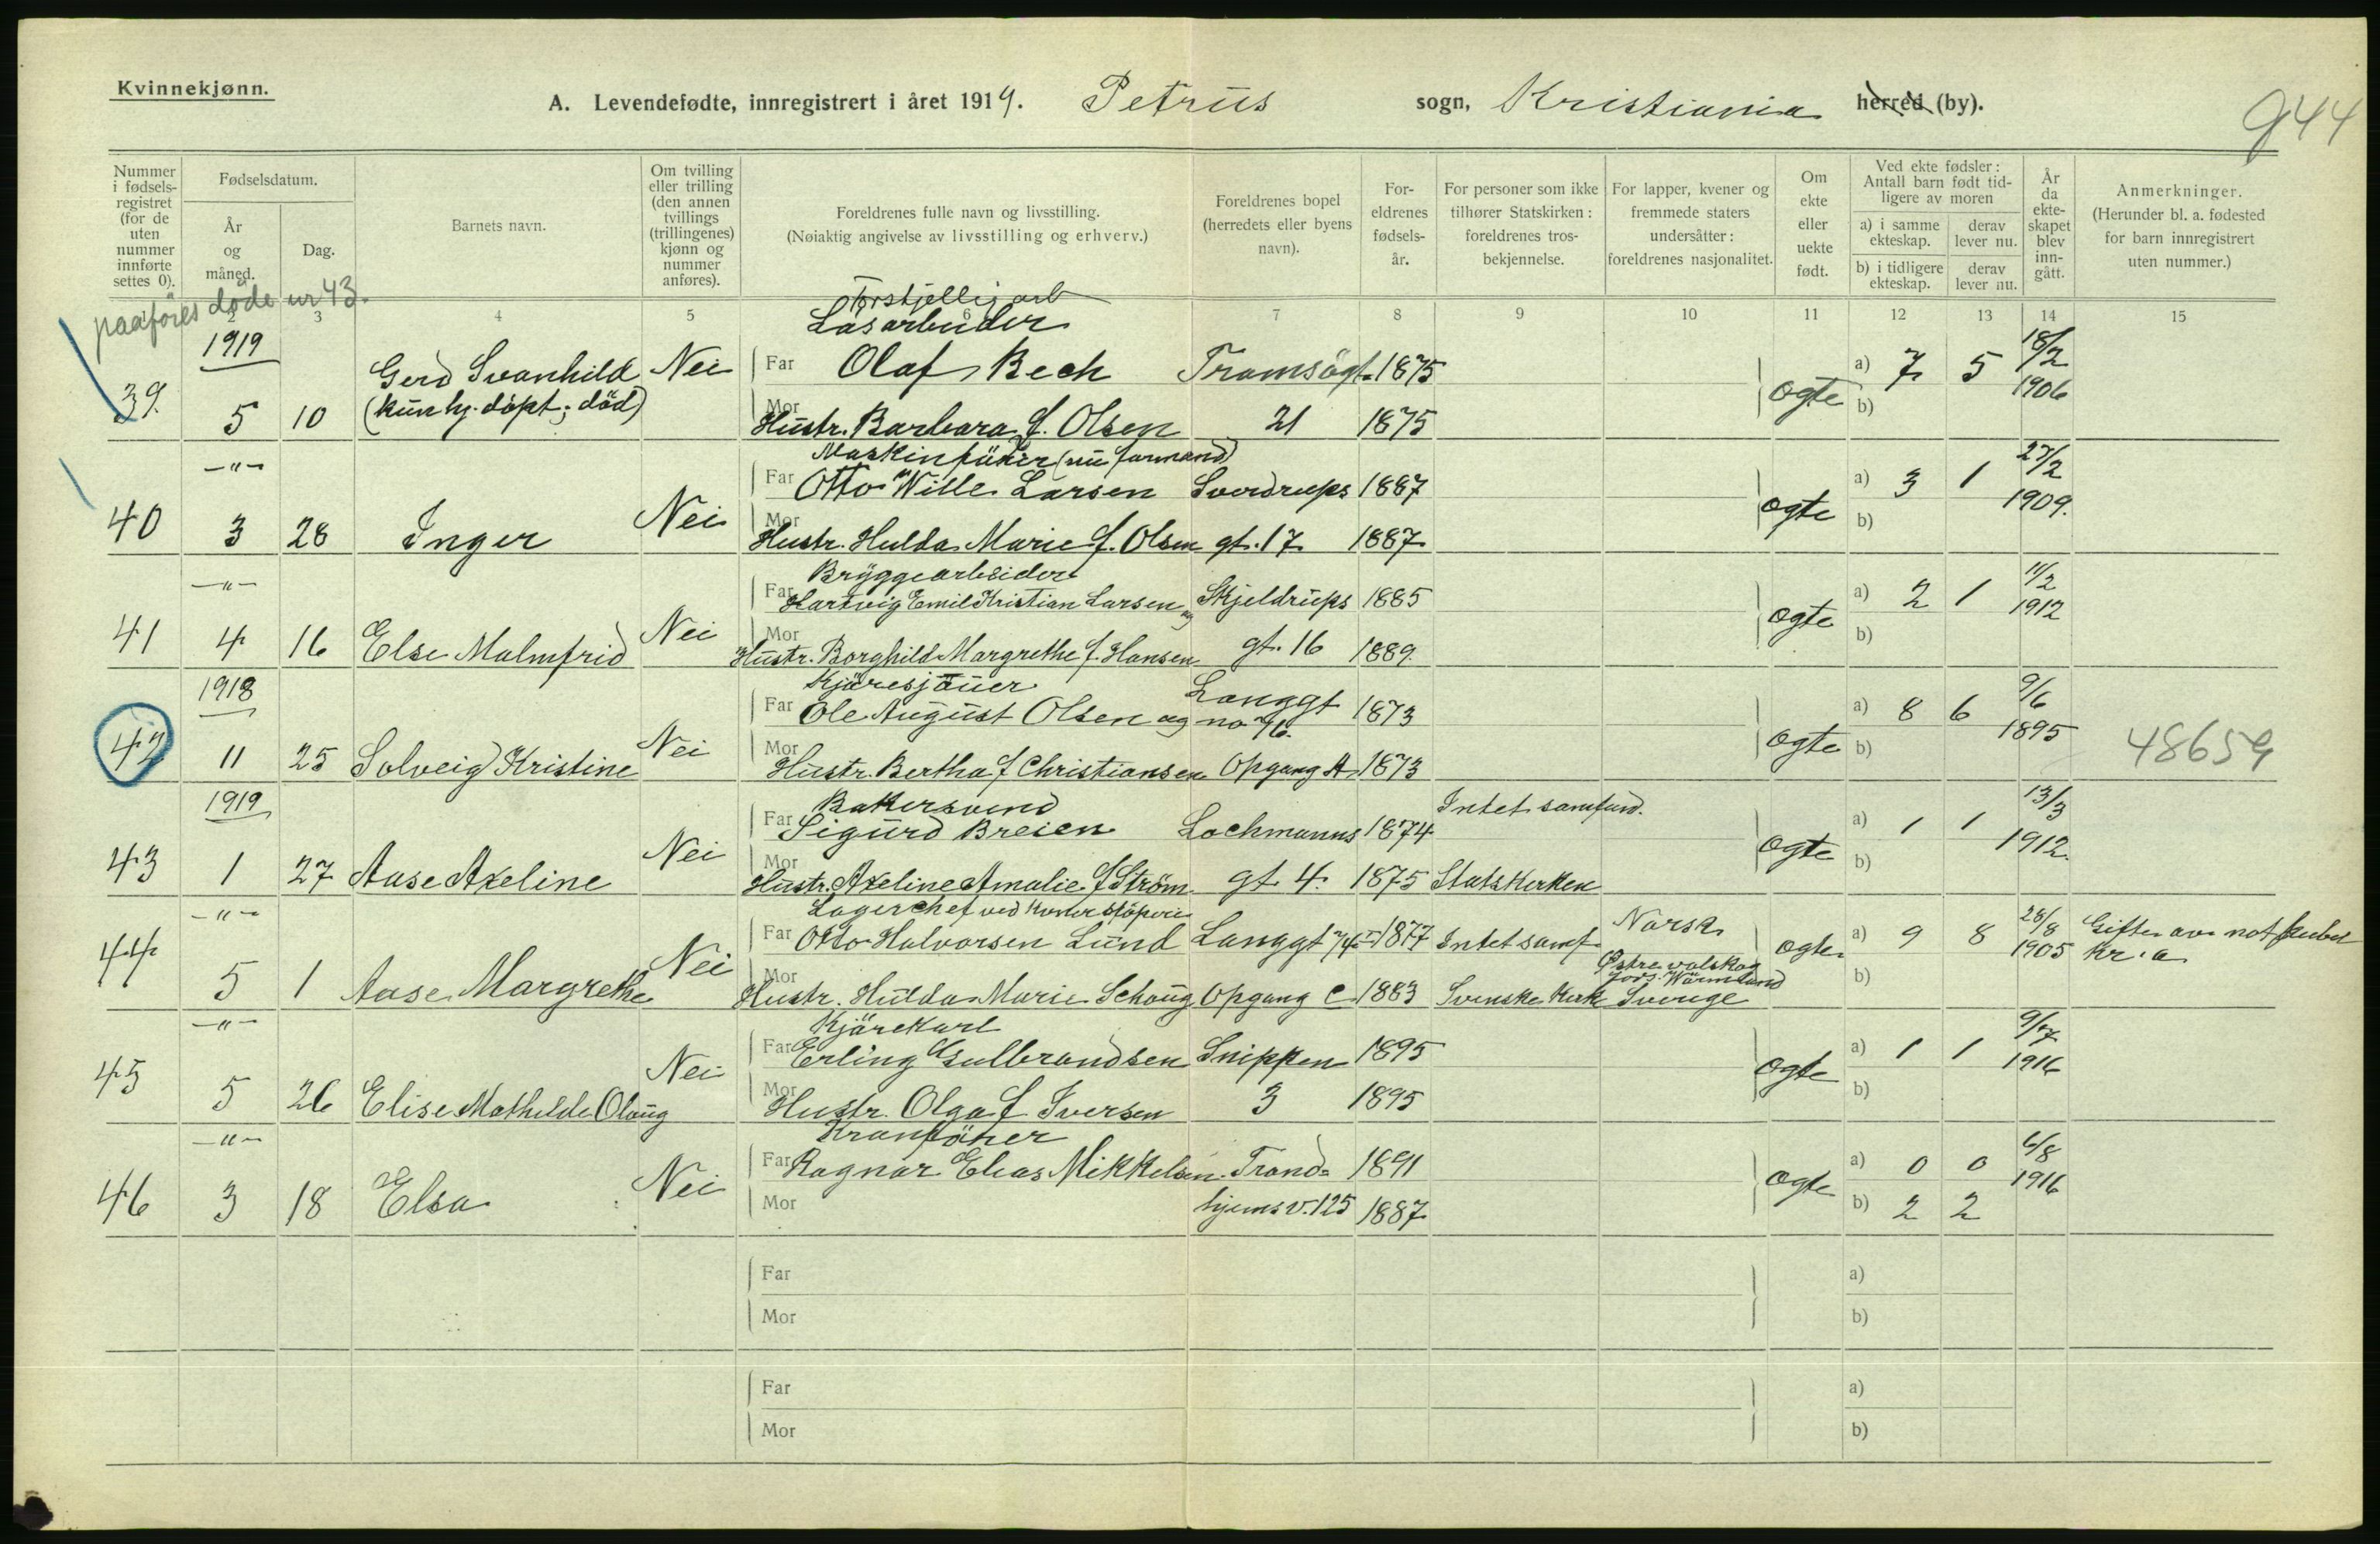 Kvinnekjønn.
A. Levendefødte, innregistrert i året 1919. Petrus sogn, Kristiania herred (by).
944
Nummer i fødsels-registret (for de uten nummer innførte settes 0).
Fødselsdatum.
År og måned.
Dag.
Barnets navn.
Om tvilling eller trilling (den annen tvillings (trillingenes) kjønn og nummer anføres).
Foreldrenes fulle navn og livsstilling.
(Nøiaktig angivelse av livsstilling og erhverv.)
Foreldrenes bopel (herredets eller byens navn).
For-eldrenes fødsels-år.
For personer som ikke tilhører Statskirken: foreldrenes tros-bekjennelse.
For lapper, kvener og fremmede staters undersåtter: foreldrenes nasjonalitet.
Om ekte eller uekte født.
Ved ekte fødsler: Antall barn født tid-ligere av moren
a) i samme ekteskap. derav lever nu.
b) i tidligere ekteskap. derav lever nu.
År da ekte-skapet blev inn-gått.
Anmerkninger.
(Herunder bl. a. fødested for barn innregistrert uten nummer.)
paaføres døde nr 43.
2 3 4 5 6 7 8 9 10 11 12 13 14 15
Forskjellig arb
Løsarbeider
1919
39. 5 10 Gerd Svanhild Nei Far Olaf Bech Tromsögt. 1875 18/2
(kun hj. döpt; död) Mor Hustr. Barbara f. Olsen 21 1875 ogte a) 7 5 1906 b)
Maskinpüsser (nu formand)
—"— Far Otto Wille Larsen Sverdrups 1887 a) 3 1 27/2
40 3 28 Inger Nei Mor Hustr. Hulda Marie f. Olsen gt. 17 1887 ogte b) 1909.
Bryggearbeider
—"— Far Hartvig Emil Kristian Larsen og Skjeldrups 1885 a) 2 1 11/2
41 4 16 Else Malmfrid Nei Mor Hustr. Borghild Margrethe f. Hansen gt. 16 1889. ogte b) 1912
Kjöresjauer
1918 Far Ole August Olsen og Langgt no 7/6. 1873 a) 8 6 9/6
42 11 25 Solveig Kristine Nei Mor Hustr. Bertha f Christiansen Opgang A 1873 ogte b) 1895 48659
Bakersvend
1919 Far Sigurd Breien Lochmanns 1874 Intet samfund. a) 1 1 13/3
43 1 27 Aase Axeline Nei Mor Hustr. Axeline Amalie f Ström gt 4. 1875 Statskirken ogte b) 1912.
Lagerchef ved
—"— Far Otto Halvorsen Lund Langgt 1877 Intet samf. Norsk ogte a) 9 8 28/8 1905 Gifte av not. publ Kr.a
44 5 1 Aase Margrethe Nei Mor Hustr. Hulda Marie Schaug Opgang C 1883 Svenske Kirke Østre valskog jors. Wärmland Sverige b)
Kjörekarl
—"— Far Erling Gulbrandsen Snippen 1895 a) 1 1 9/7
45 5 26 Elise Mathilde Olaug Nei Mor Hustr. Olga f Iversen 3 1895 ogte b) 1916
Kranförer
—"— Far Ragnar Elias Mikkelsen Trond= 1891 a) 0 0 6/8
46 3 18 Elsa Nei Mor hjemsv. 125 1887 ogte b) 2 2 1916
Far a)
Mor b)
Far a)
Mor b)